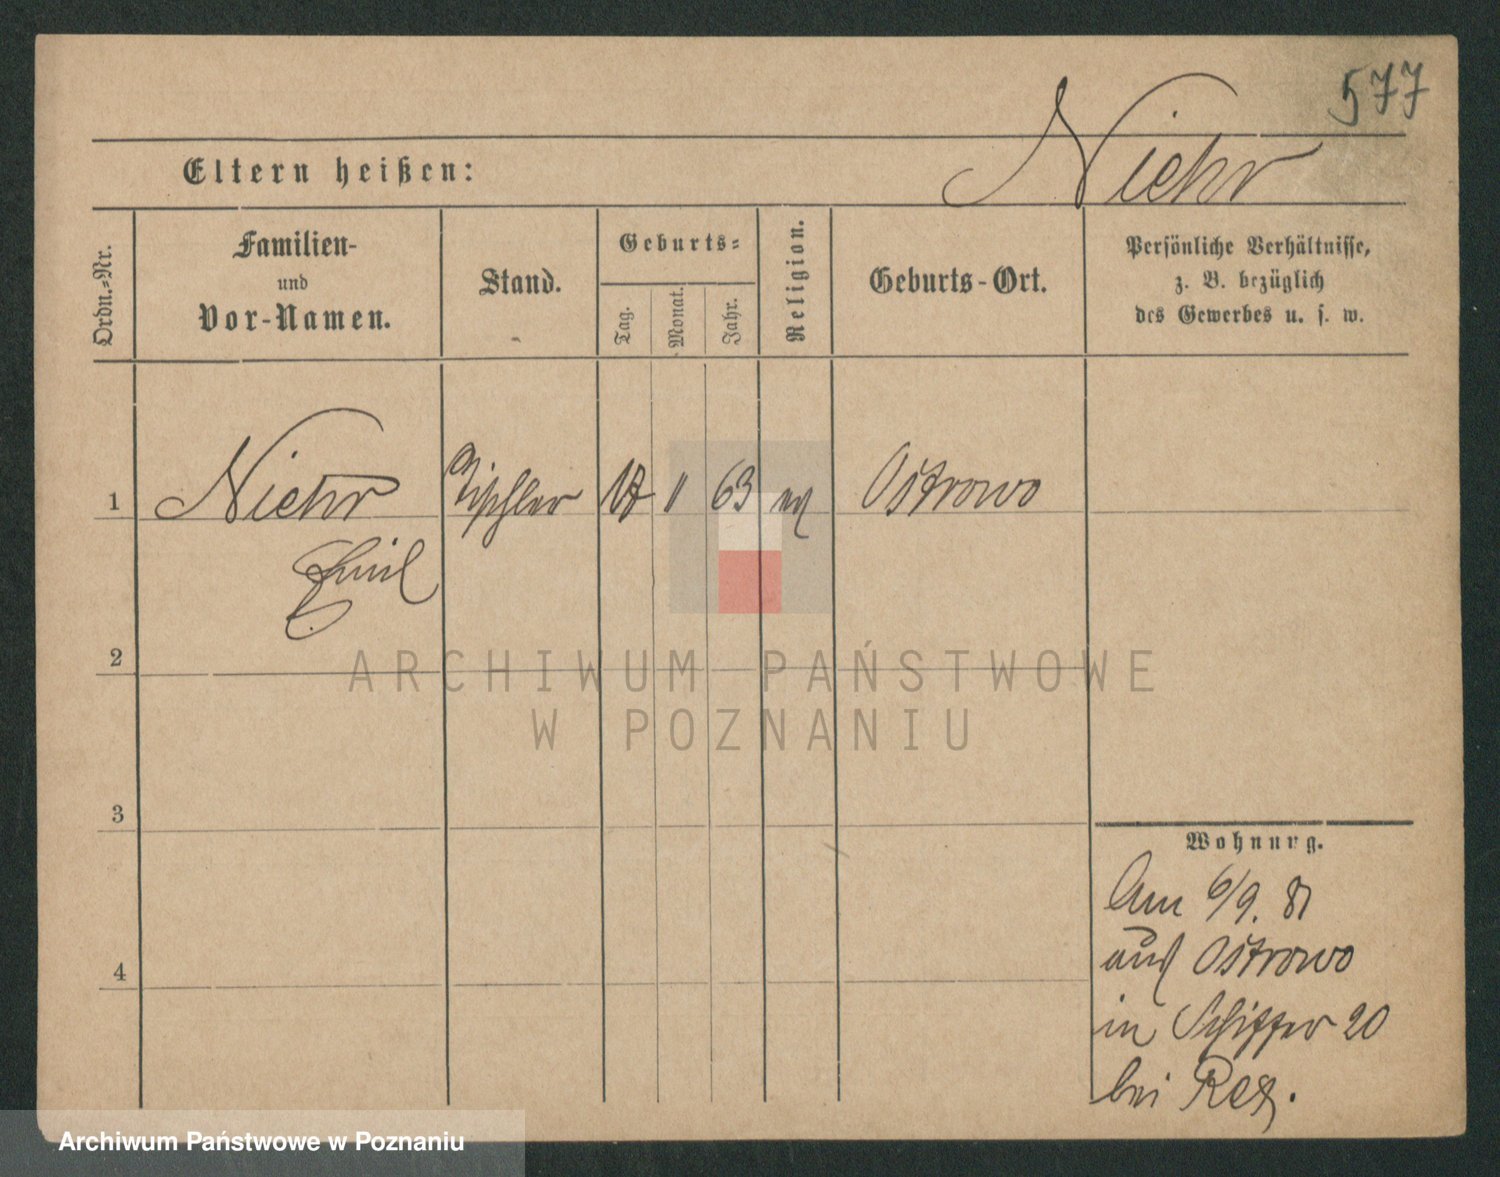 577
Niehr
Eltern heißen:
Ordn.-Nr.
Familien-
und
Vor-Namen.
Stand.
Geburts-
Tag.
Monat.
Jahr.
Religion.
Geburts-Ort.
Persönliche Verhältnisse,
z. B. bezüglich
des Gewerbes u. s. w.
1 Niehr Tischler 17 11 63 ev Ostrowo
Emil
2
3
4
Wohnung.
Am 6/9. 81
aus Ostrowo
in Schiffer 20
bei
ARCHIWUM PAŃSTWOWE
W POZNANIU
Archiwum Państwowe w Poznaniu